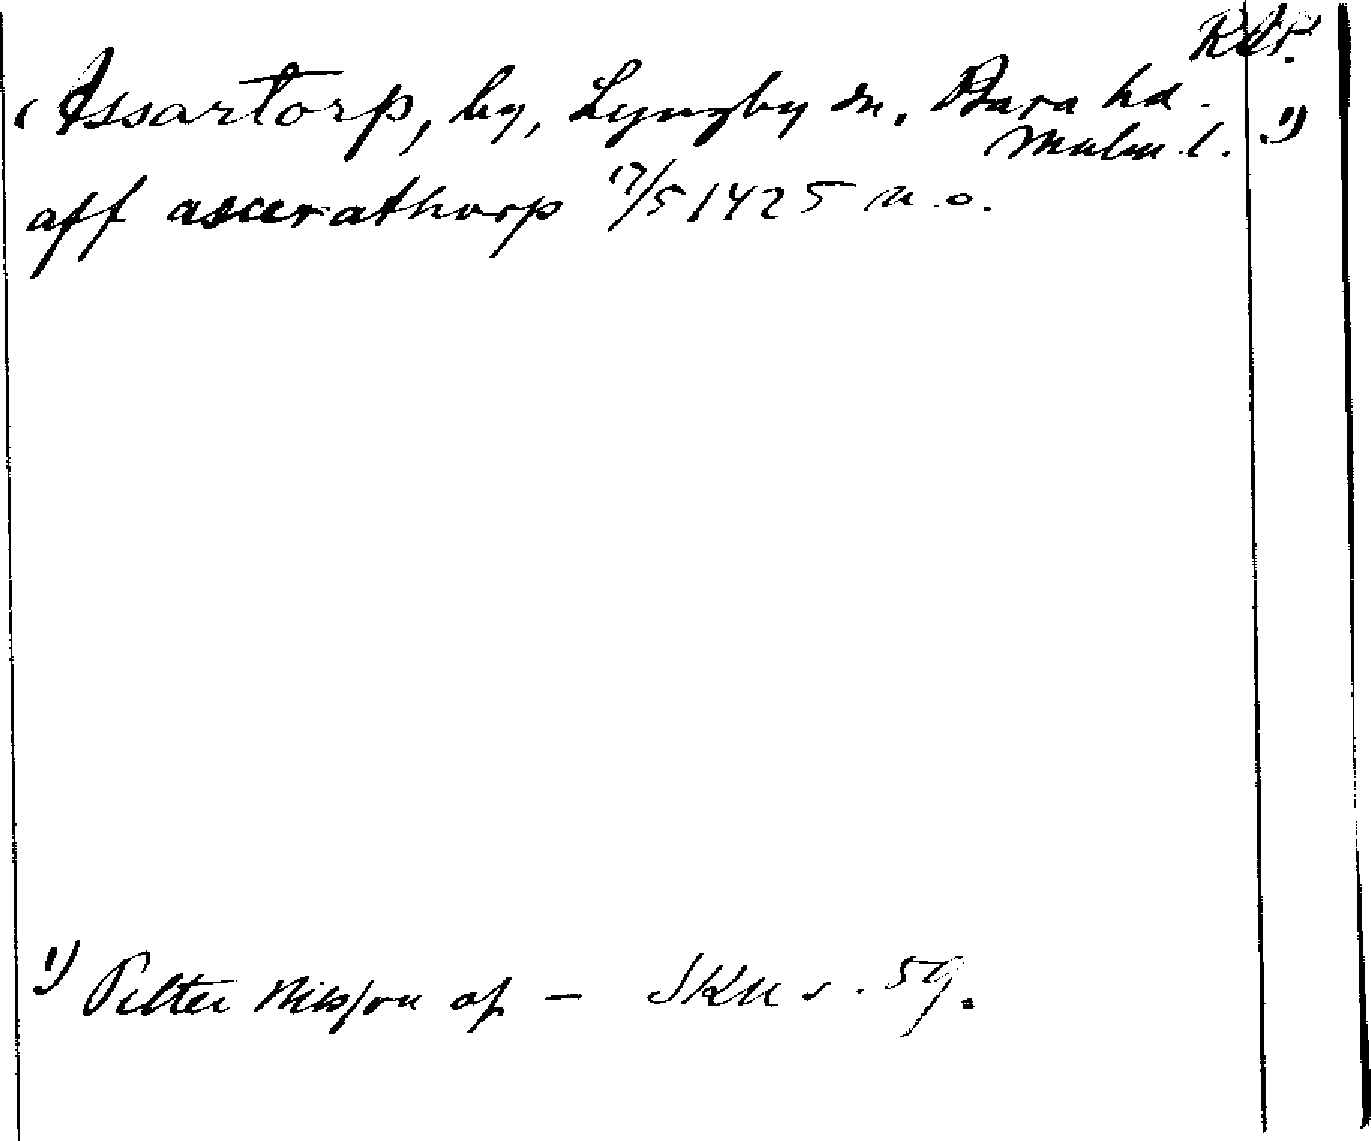 Assartorp, by, Lyngby sn. Bara hd.
Malm. l. 1)
aff ascerathorp 17/5 1425 n.o.
1) Petter Nilsson af — SKU s. 59.